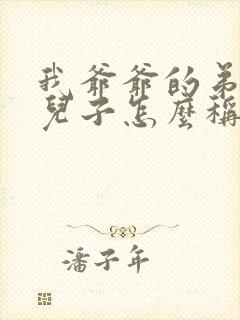 我爺爺的弟
兒子怎麼稱
潘子年